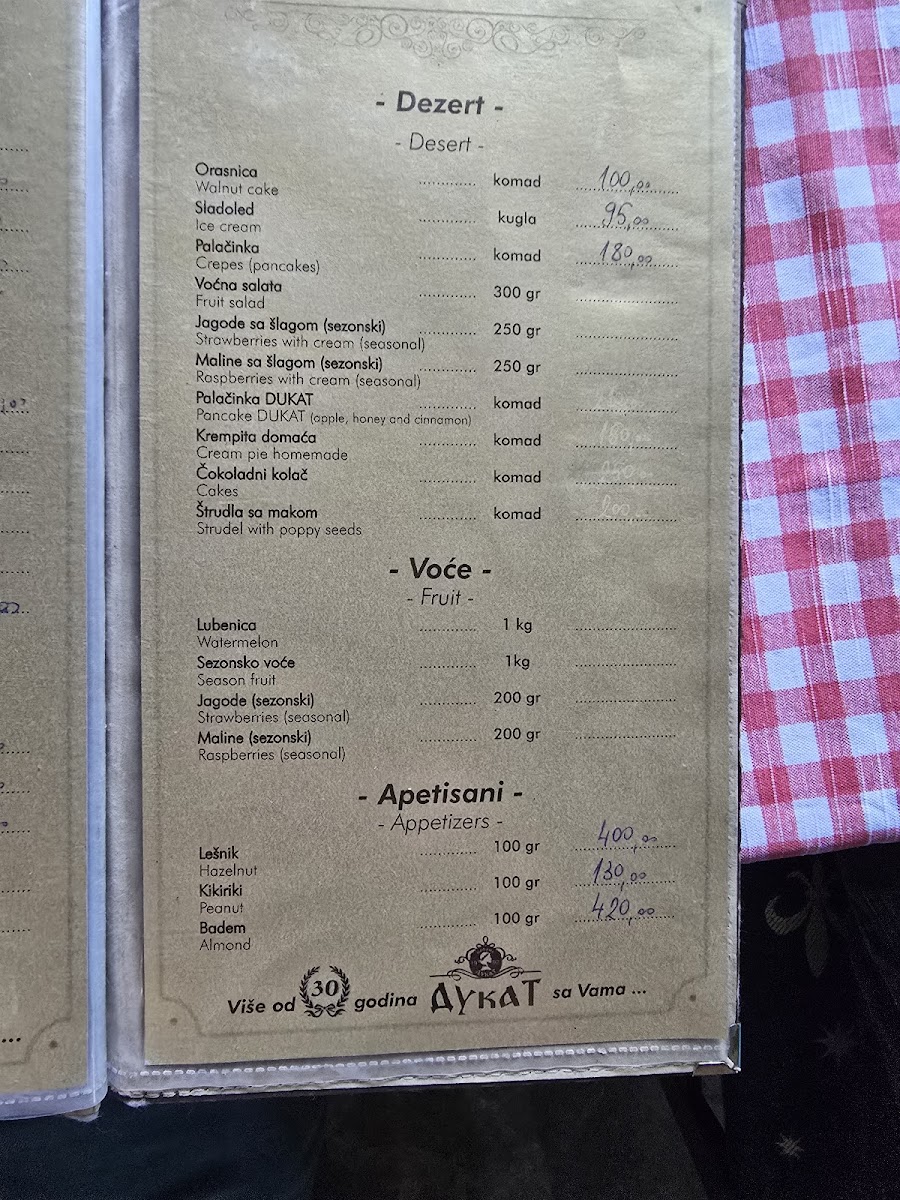 - Dezert -
- Desert -
Orasnica ............ komad 100,00
Walnut cake
Sladoled ............ kugla 95,00
Ice cream
Palačinka ............ komad 180,00
Crepes (pancakes)
Voćna salata ............ 300 gr ............
Fruit salad
Jagode sa šlagom (sezonski) ............ 250 gr ............
Strawberries with cream (seasonal)
Maline sa šlagom (sezonski) ............ 250 gr ............
Raspberries with cream (seasonal)
Palačinka DUKAT ............ komad
Pancake DUKAT (apple, honey and cinnamon)
Krempita domaća ............ komad
Cream pie homemade
Čokoladni kolač ............ komad
Cakes
Štrudla sa makom ............ komad
Strudel with poppy seeds
- Voće -
- Fruit -
Lubenica ............ 1 kg ............
Watermelon
Sezonsko voće ............ 1kg ............
Season fruit
Jagode (sezonski) ............ 200 gr ............
Strawberries (seasonal)
Maline (sezonski) ............ 200 gr ............
Raspberries (seasonal)
- Apetisani -
- Appetizers -
Lešnik ............ 100 gr 400,00
Hazelnut
Kikiriki ............ 100 gr 130,00
Peanut
Badem ............ 100 gr 420,00
Almond
Više od 30 godina ДУКАТ sa Vama ...